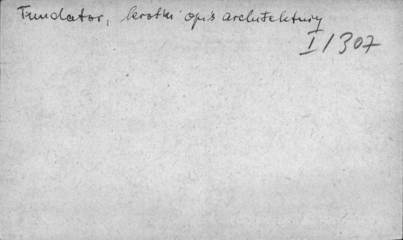 Fundator, krotki opis architektury
I/307